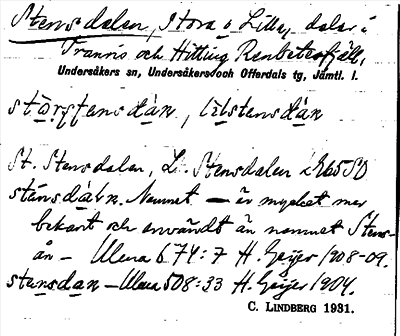 Stensdalen, Stora o Lilla, dalar i
Tranris och Hitting Renbetesfjäll,
Undersåkers sn, Undersåkers och Offerdals tg, Jämtl. l.
stɷrstensdàn, lilstensdàn
St. Stensdalen, L. Stensdalen 65 SO
stensdàln. Namnet – är mycket mer
bekant och användt än namnet Stens-
ån – Ulma 674:7 H. Geijer 1908-09.
stensdan – Ulma 508:33 H. Geijer 1904.
C. LINDBERG 1931.